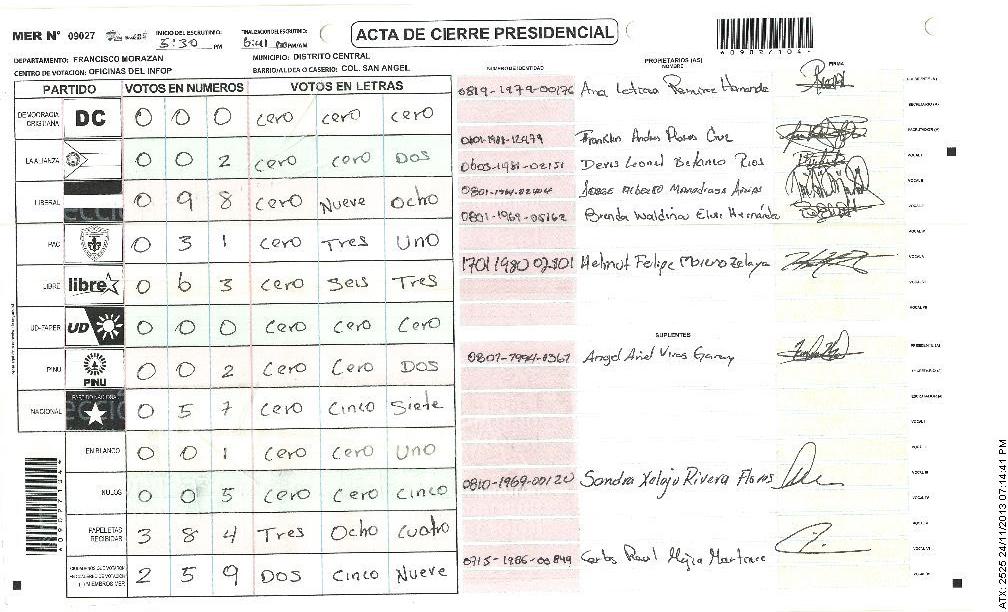 MER N° 09027
INICIO DEL ESCRUTINIO: 5:30 PM
FINALIZACION DEL ESCRUTINIO: 6:41 PM/AM
ACTA DE CIERRE PRESIDENCIAL
DEPARTAMENTO: FRANCISCO MORAZAN
MUNICIPIO: DISTRITO CENTRAL
CENTRO DE VOTACION: OFICINAS DEL INFOP
BARRIO/ALDEA O CASERIO: COL. SAN ANGEL
PARTIDO VOTOS EN NUMEROS VOTOS EN LETRAS
DEMOCRACIA CRISTIANA DC 0 0 0 cero cero cero
LA ALIANZA 0 0 2 cero cero Dos
LIBERAL 0 9 8 cero Nueve Ocho
PAC 0 3 1 cero Tres Uno
LIBRE libre 0 6 3 cero Seis Tres
UD-FAPER UD 0 0 0 cero cero cero
PINU PNU 0 0 2 cero cero Dos
NACIONAL 0 5 7 cero cinco Siete
EN BLANCO 0 0 1 cero cero Uno
NULOS 0 0 5 cero cero cinco
PAPELETAS RECIBIDAS 3 8 4 Tres Ocho cuatro
2 5 9 Dos cinco Nueve
NUMERO DE IDENTIDAD PROPIETARIOS (AS) NOMBRE FIRMA
0819-1979-00176 Ana Leticia Ramirez
Franklin Andres Flores Cruz
0605-1981-02151 Denis Leonel Betanco Rios
Jorge Alberto
0801-1969-05162 Brenda Waldina Hernández
1701 1980 02801 Helmut Felipe Moreno Zelaya
SUPLENTES
Angel Ariel
0810-1969-00120 Sandra Xelaju Rivera Flores
0715-1986-00849 Carlos Raul Mejia Martinez
ATX: 2525 24/11/2013 07:14:41 PM